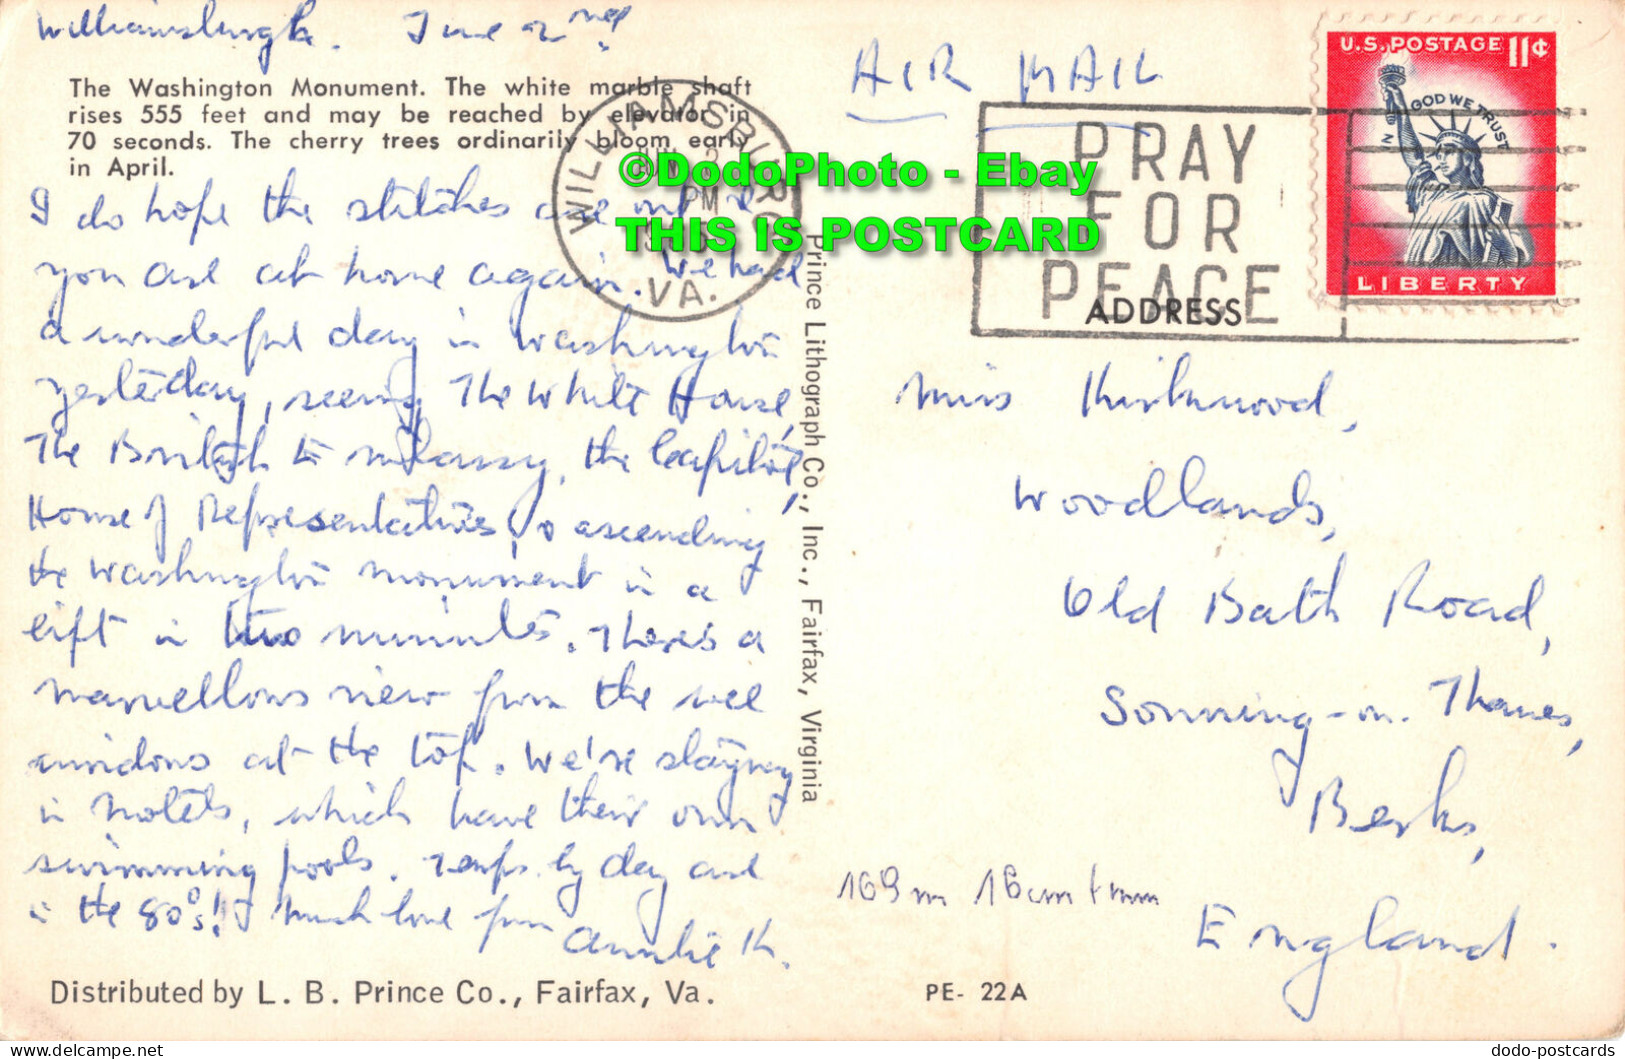 Williamsburgh. June 2nd
The Washington Monument. The white marble shaft
rises 555 feet and may be reached by elevator in
70 seconds. The cherry trees ordinarily bloom early
in April.
I do hope the stitches are out &
you are at home again. We had
a wonderful day in Washington
yesterday, seeing The White House,
The British Embassy, the Capitol,
House of Representatives, & ascending
the Washington monument in a
lift in two minutes. There's a
marvellous view from the wee
windows at the top. We're staying
in Motels, which have their own
swimming pools. Temps. by day are
in the 80°s! Much love from
Auntie K.
Distributed by L. B. Prince Co., Fairfax, Va.
Prince Lithograph Co., Inc., Fairfax, Virginia
WILLIAMSBURG
PM
VA.
©DodoPhoto - Ebay
THIS IS POSTCARD
AIR MAIL
PRAY
FOR
PEACE
U.S. POSTAGE 11¢
IN GOD WE TRUST
LIBERTY
ADDRESS
Miss Kirkwood,
Woodlands,
Old Bath Road,
Sonning-on-Thames,
Berks,
England.
169m 16cm 1mm
PE- 22A
The Delcampe Website
dodo-postcards